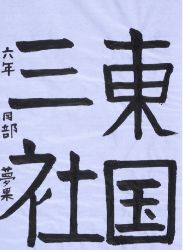 東国
三社
六年 日部 夢果